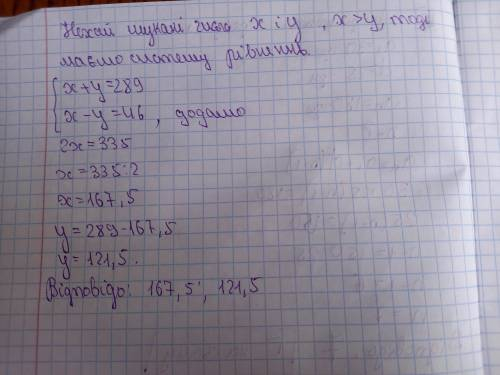 Нехай шукані числа x і y, x>y, тоді
маємо систему рівнянь
x+y=289
x-y=46, додамо
2x=335
x=335:2
x=167,5
y=289-167,5
y=121,5.
Відповідь: 167,5; 121,5